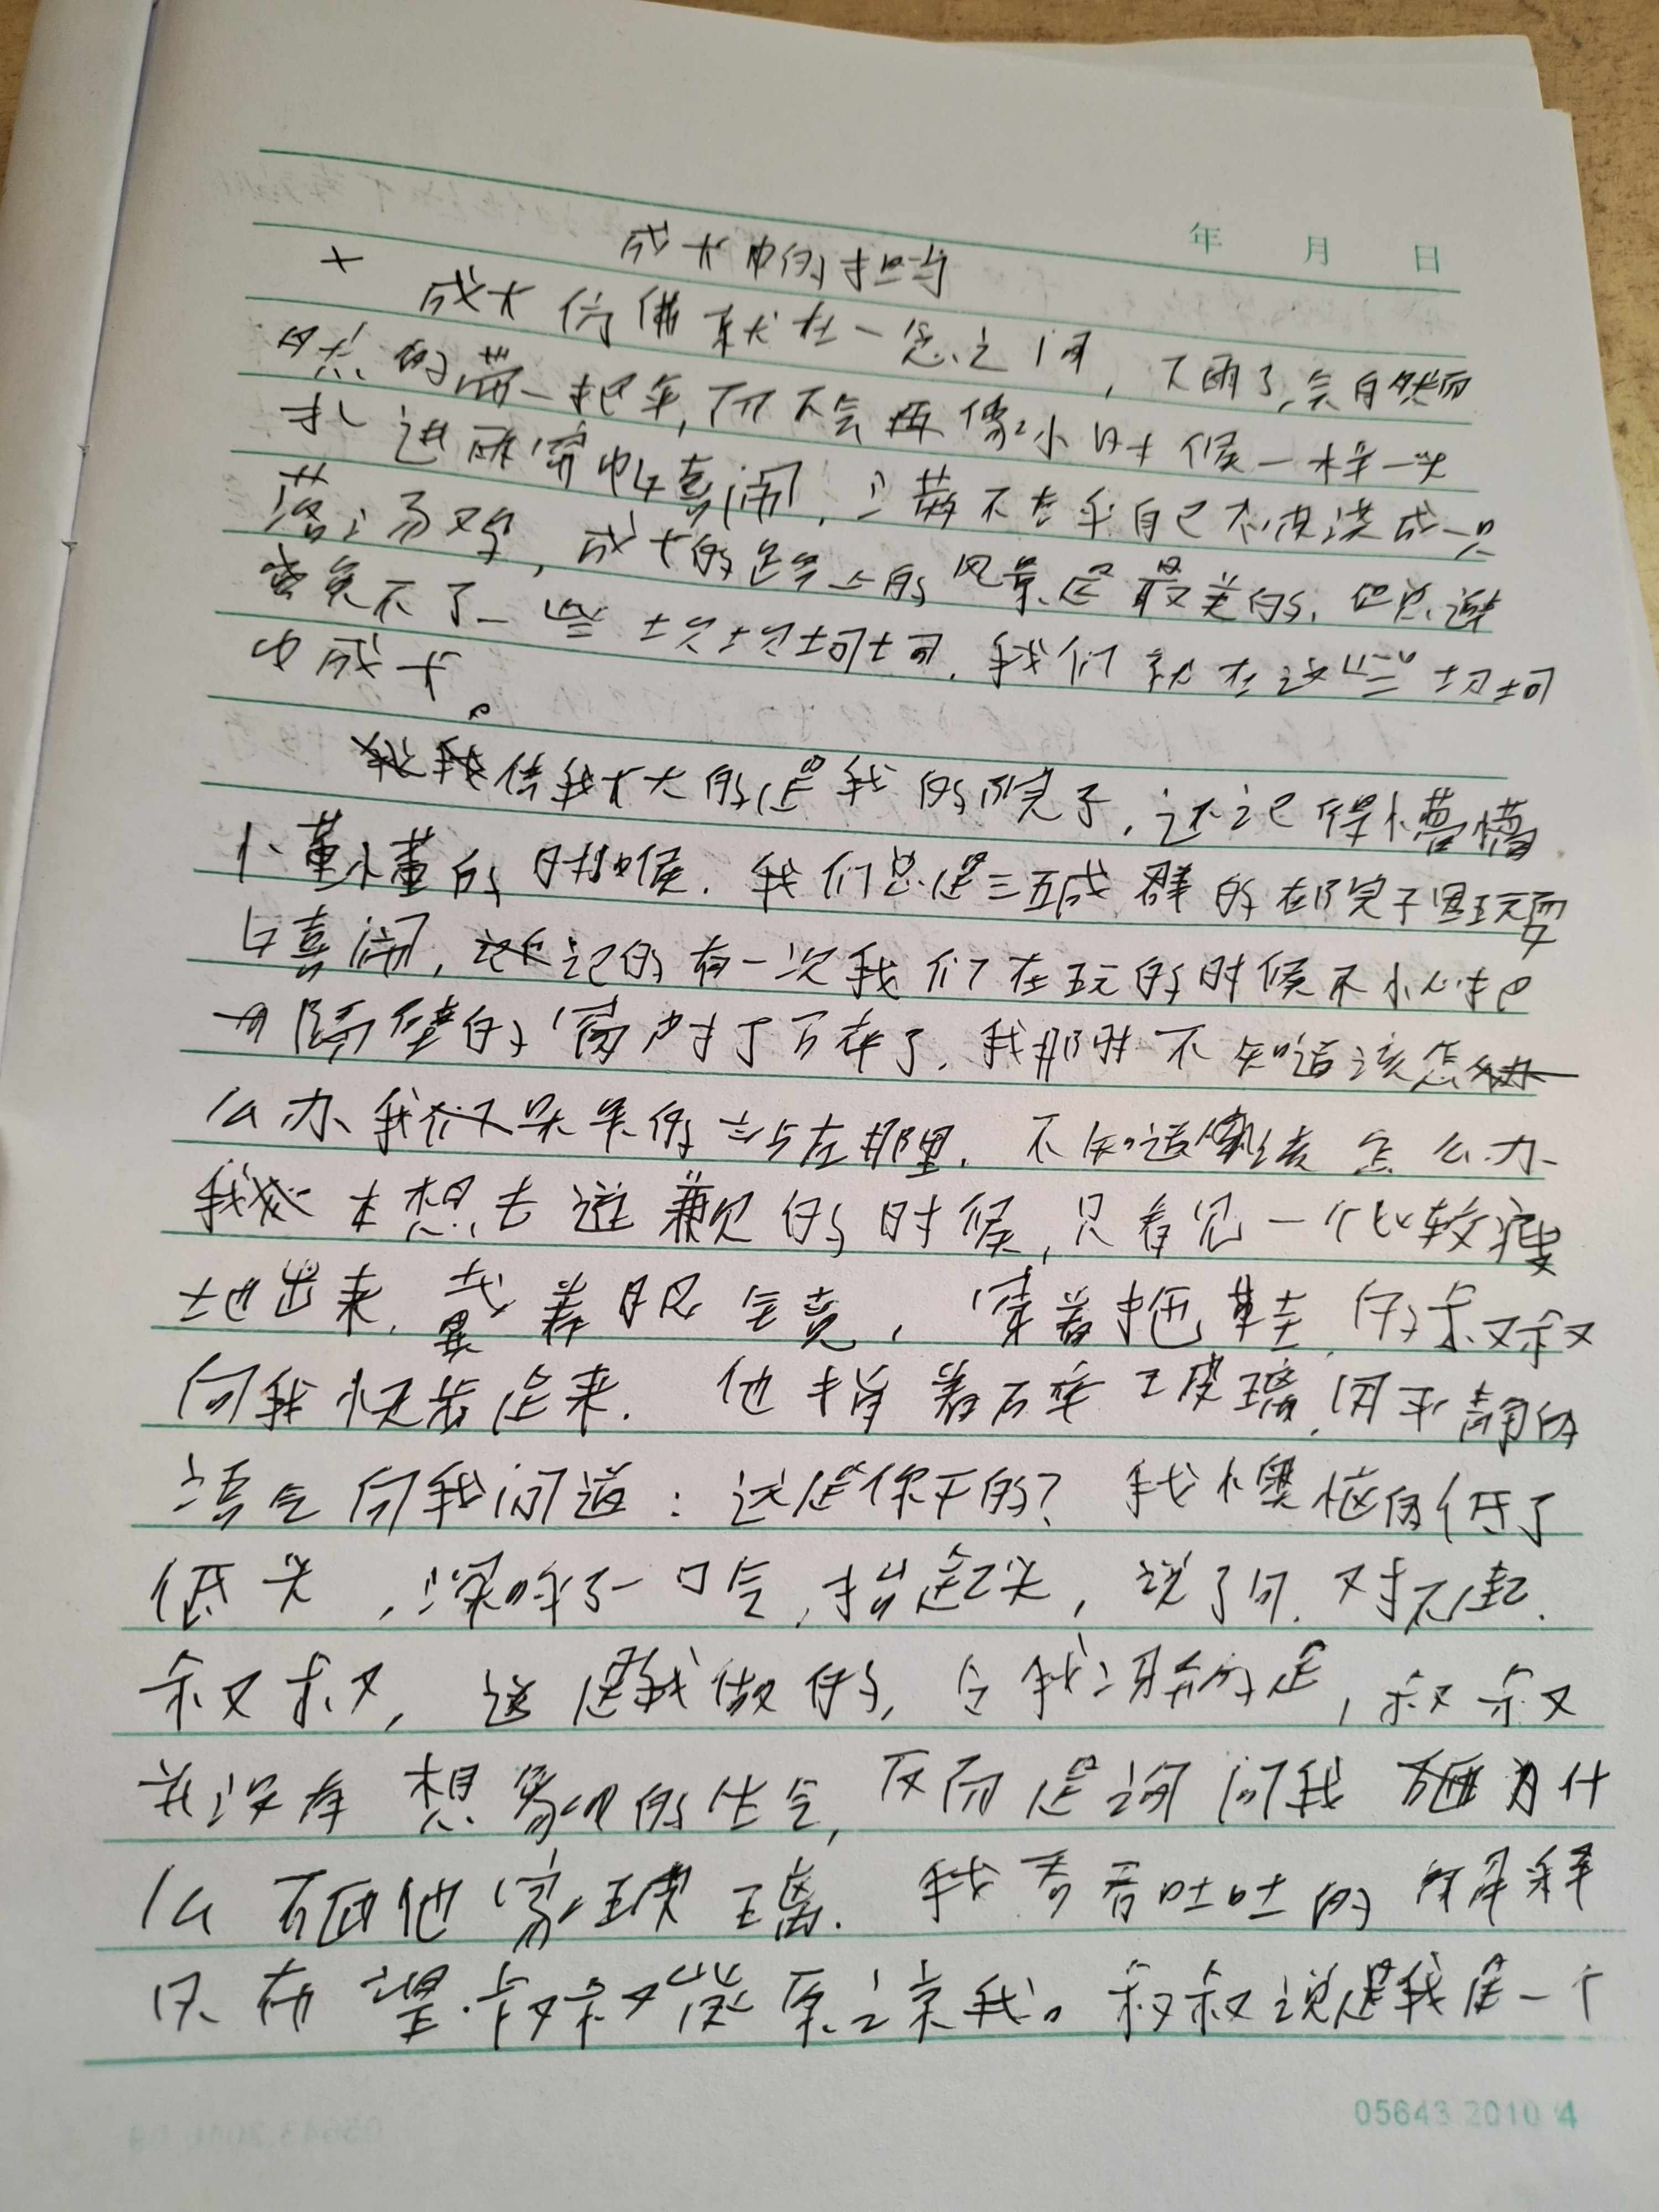 年 月 日
成长中的
成长仿佛就在一念之间，下雨了，会自然而
然的带一把伞，而不会再像小时候一样一头
扎进雨帘中嬉闹，三毫不在乎自己被浇成一只
落汤鸡，成长的路上的风景是最美的，但总避
免不了一些坎坎坷坷，我们就在这些坎坷
中成长。
伴我长大的是我的院子，还记得懵懵
懂懂的时候，我们总是三五成群的在院子里玩耍
嬉闹，记的有一次我们在玩的时候不小心把
隔壁的窗户打了碎了，我那时不知道该怎
么办我们又呆呆的站在那里，不知道该怎么办
我本想去道歉的时候，只看见一个比较瘦
地出来，戴着眼镜，穿着拖鞋的叔叔
向我快步走来，他指着碎玻璃，用平静的
语气向我问道：这是你干的？我懊恼的低了
低头，深呼了一口气，抬起头，说了句，对不起，
叔叔，这是我做的，令我讶的是，叔叔
并没有想象的生气，反而是询问我为什
么砸他家玻璃，我吞吞吐吐的解释
只希望叔叔能原谅我。叔叔说是我是一个
05643 2010 4